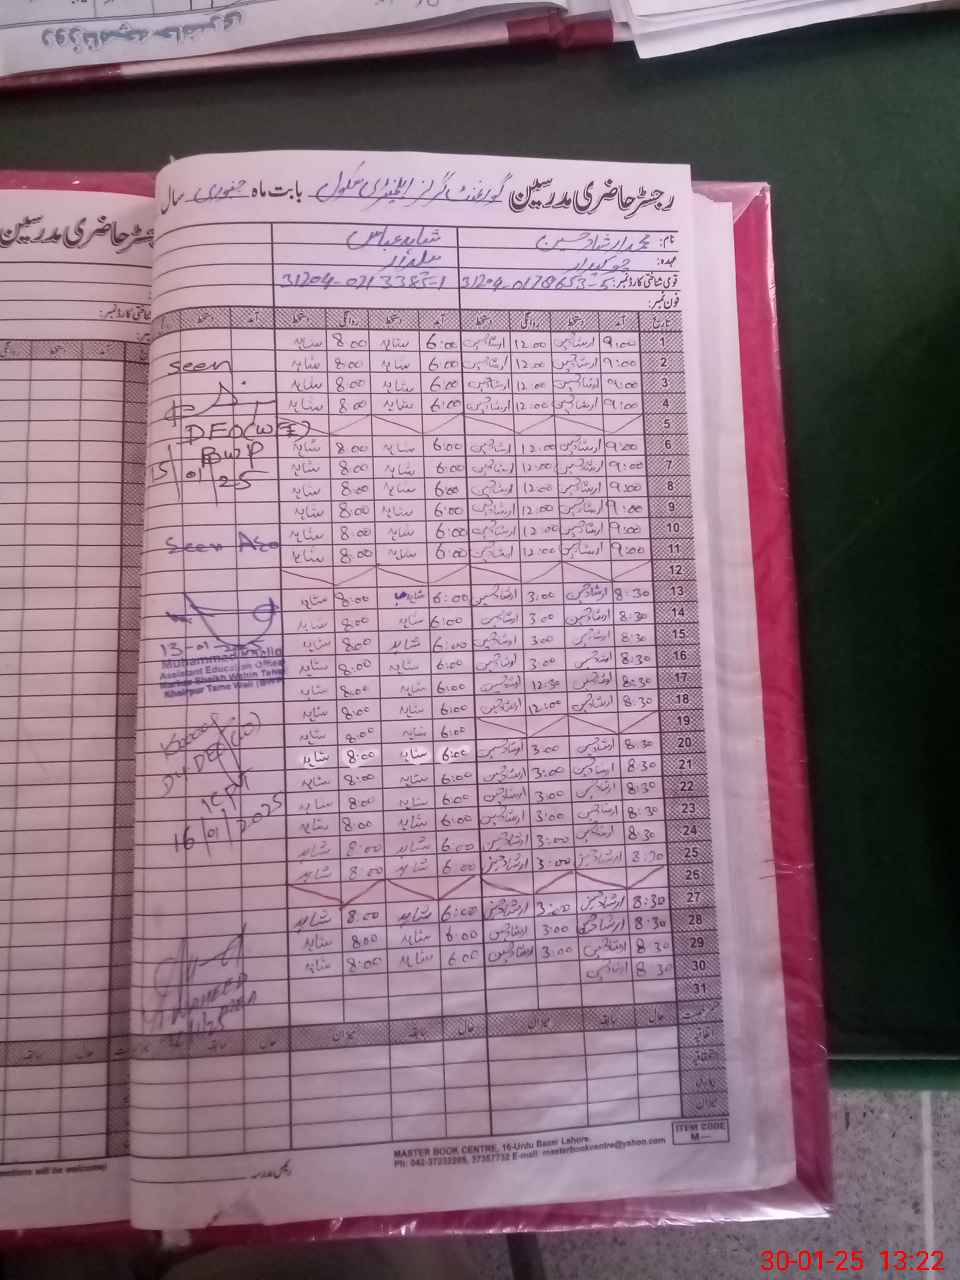 روزنامچہ حاضری
رجسٹر حاضری مدرسین گورنمنٹ گرلز ایلیمنٹری سکول بابت ماہ جنوری سال
نام: محمد ارشاد حسین شاہد عباس
عہدہ: چوکیدار سیلدار
قومی شناختی کارڈ نمبر: 31204-0178653-5 31204-0213385-1
فون نمبر:
تاریخ آمد دستخط روانگی دستخط آمد دستخط روانگی دستخط آمد دستخط
1 9:00 ارشاد حسین 12:00 ارشاد حسین 6:00 شاہد 8:00 شاہد
2 9:00 ارشاد حسین 12:00 ارشاد حسین 6:00 شاہد 8:00 شاہد
3 9:00 ارشاد حسین 12:00 ارشاد حسین 6:00 شاہد 8:00 شاہد
4 9:00 ارشاد حسین 12:00 ارشاد حسین 6:00 شاہد 8:00 شاہد
5
6 9:00 ارشاد حسین 12:00 ارشاد حسین 6:00 شاہد 8:00 شاہد
7 9:00 ارشاد حسین 12:00 ارشاد حسین 6:00 شاہد 8:00 شاہد
8 9:00 ارشاد حسین 12:00 ارشاد حسین 6:00 شاہد 8:00 شاہد
9 9:00 ارشاد حسین 12:00 ارشاد حسین 6:00 شاہد 8:00 شاہد
10 9:00 ارشاد حسین 12:00 ارشاد حسین 6:00 شاہد 8:00 شاہد
11 9:00 ارشاد حسین 12:00 ارشاد حسین 6:00 شاہد 8:00 شاہد
12
13 8:30 ارشاد حسین 3:00 ارشاد حسین 6:00 شاہد 8:00 شاہد
14 8:30 ارشاد حسین 3:00 ارشاد حسین 6:00 شاہد 8:00 شاہد
15 8:30 ارشاد حسین 3:00 ارشاد حسین 6:00 شاہد 8:00 شاہد
16 8:30 ارشاد حسین 3:00 ارشاد حسین 6:00 شاہد 8:00 شاہد
17 8:30 ارشاد حسین 12:30 ارشاد حسین 6:00 شاہد 8:00 شاہد
18 8:30 ارشاد حسین 12:00 ارشاد حسین 6:00 شاہد 8:00 شاہد
19 6:00 شاہد 8:00 شاہد
20 8:30 ارشاد حسین 3:00 ارشاد حسین 6:00 شاہد 8:00 شاہد
21 8:30 ارشاد حسین 3:00 ارشاد حسین 6:00 شاہد 8:00 شاہد
22 8:30 ارشاد حسین 3:00 ارشاد حسین 6:00 شاہد 8:00 شاہد
23 8:30 ارشاد حسین 3:00 ارشاد حسین 6:00 شاہد 8:00 شاہد
24 8:30 ارشاد حسین 3:00 ارشاد حسین 6:00 شاہد 8:00 شاہد
25 8:30 ارشاد حسین 3:00 ارشاد حسین 6:00 شاہد 8:00 شاہد
26
27 8:30 ارشاد حسین 3:00 ارشاد حسین 6:00 شاہد 8:00 شاہد
28 8:30 ارشاد حسین 3:00 ارشاد حسین 6:00 شاہد 8:00 شاہد
29 8:30 ارشاد حسین 3:00 ارشاد حسین 6:00 شاہد 8:00 شاہد
30 8:30 ارشاد حسین
31
حال سابقہ میزان حال سابقہ میزان حال سابقہ
اتفاقیہ
میزان
seen
DEO(W-EE)
BWP
15/01/25
Seen AEO
13-01-2025
Muhammad Khalid
Assistant Education Officer
Markaz Sheikh Wahin Tehsil
Khairpur Tame Wali (BWP)
Dy. DEO
KPT
16/01/2025
رئیس مدرسہ
MASTER BOOK CENTRE, 16-Urdu Bazar Lahore.
Ph: 042-37232265, 37357732 E-mail: masterbookcentre@yahoo.com
ITEM CODE
M—
رجسٹر حاضری مدرسین
شناختی کارڈ نمبر:
30-01-25 13:22